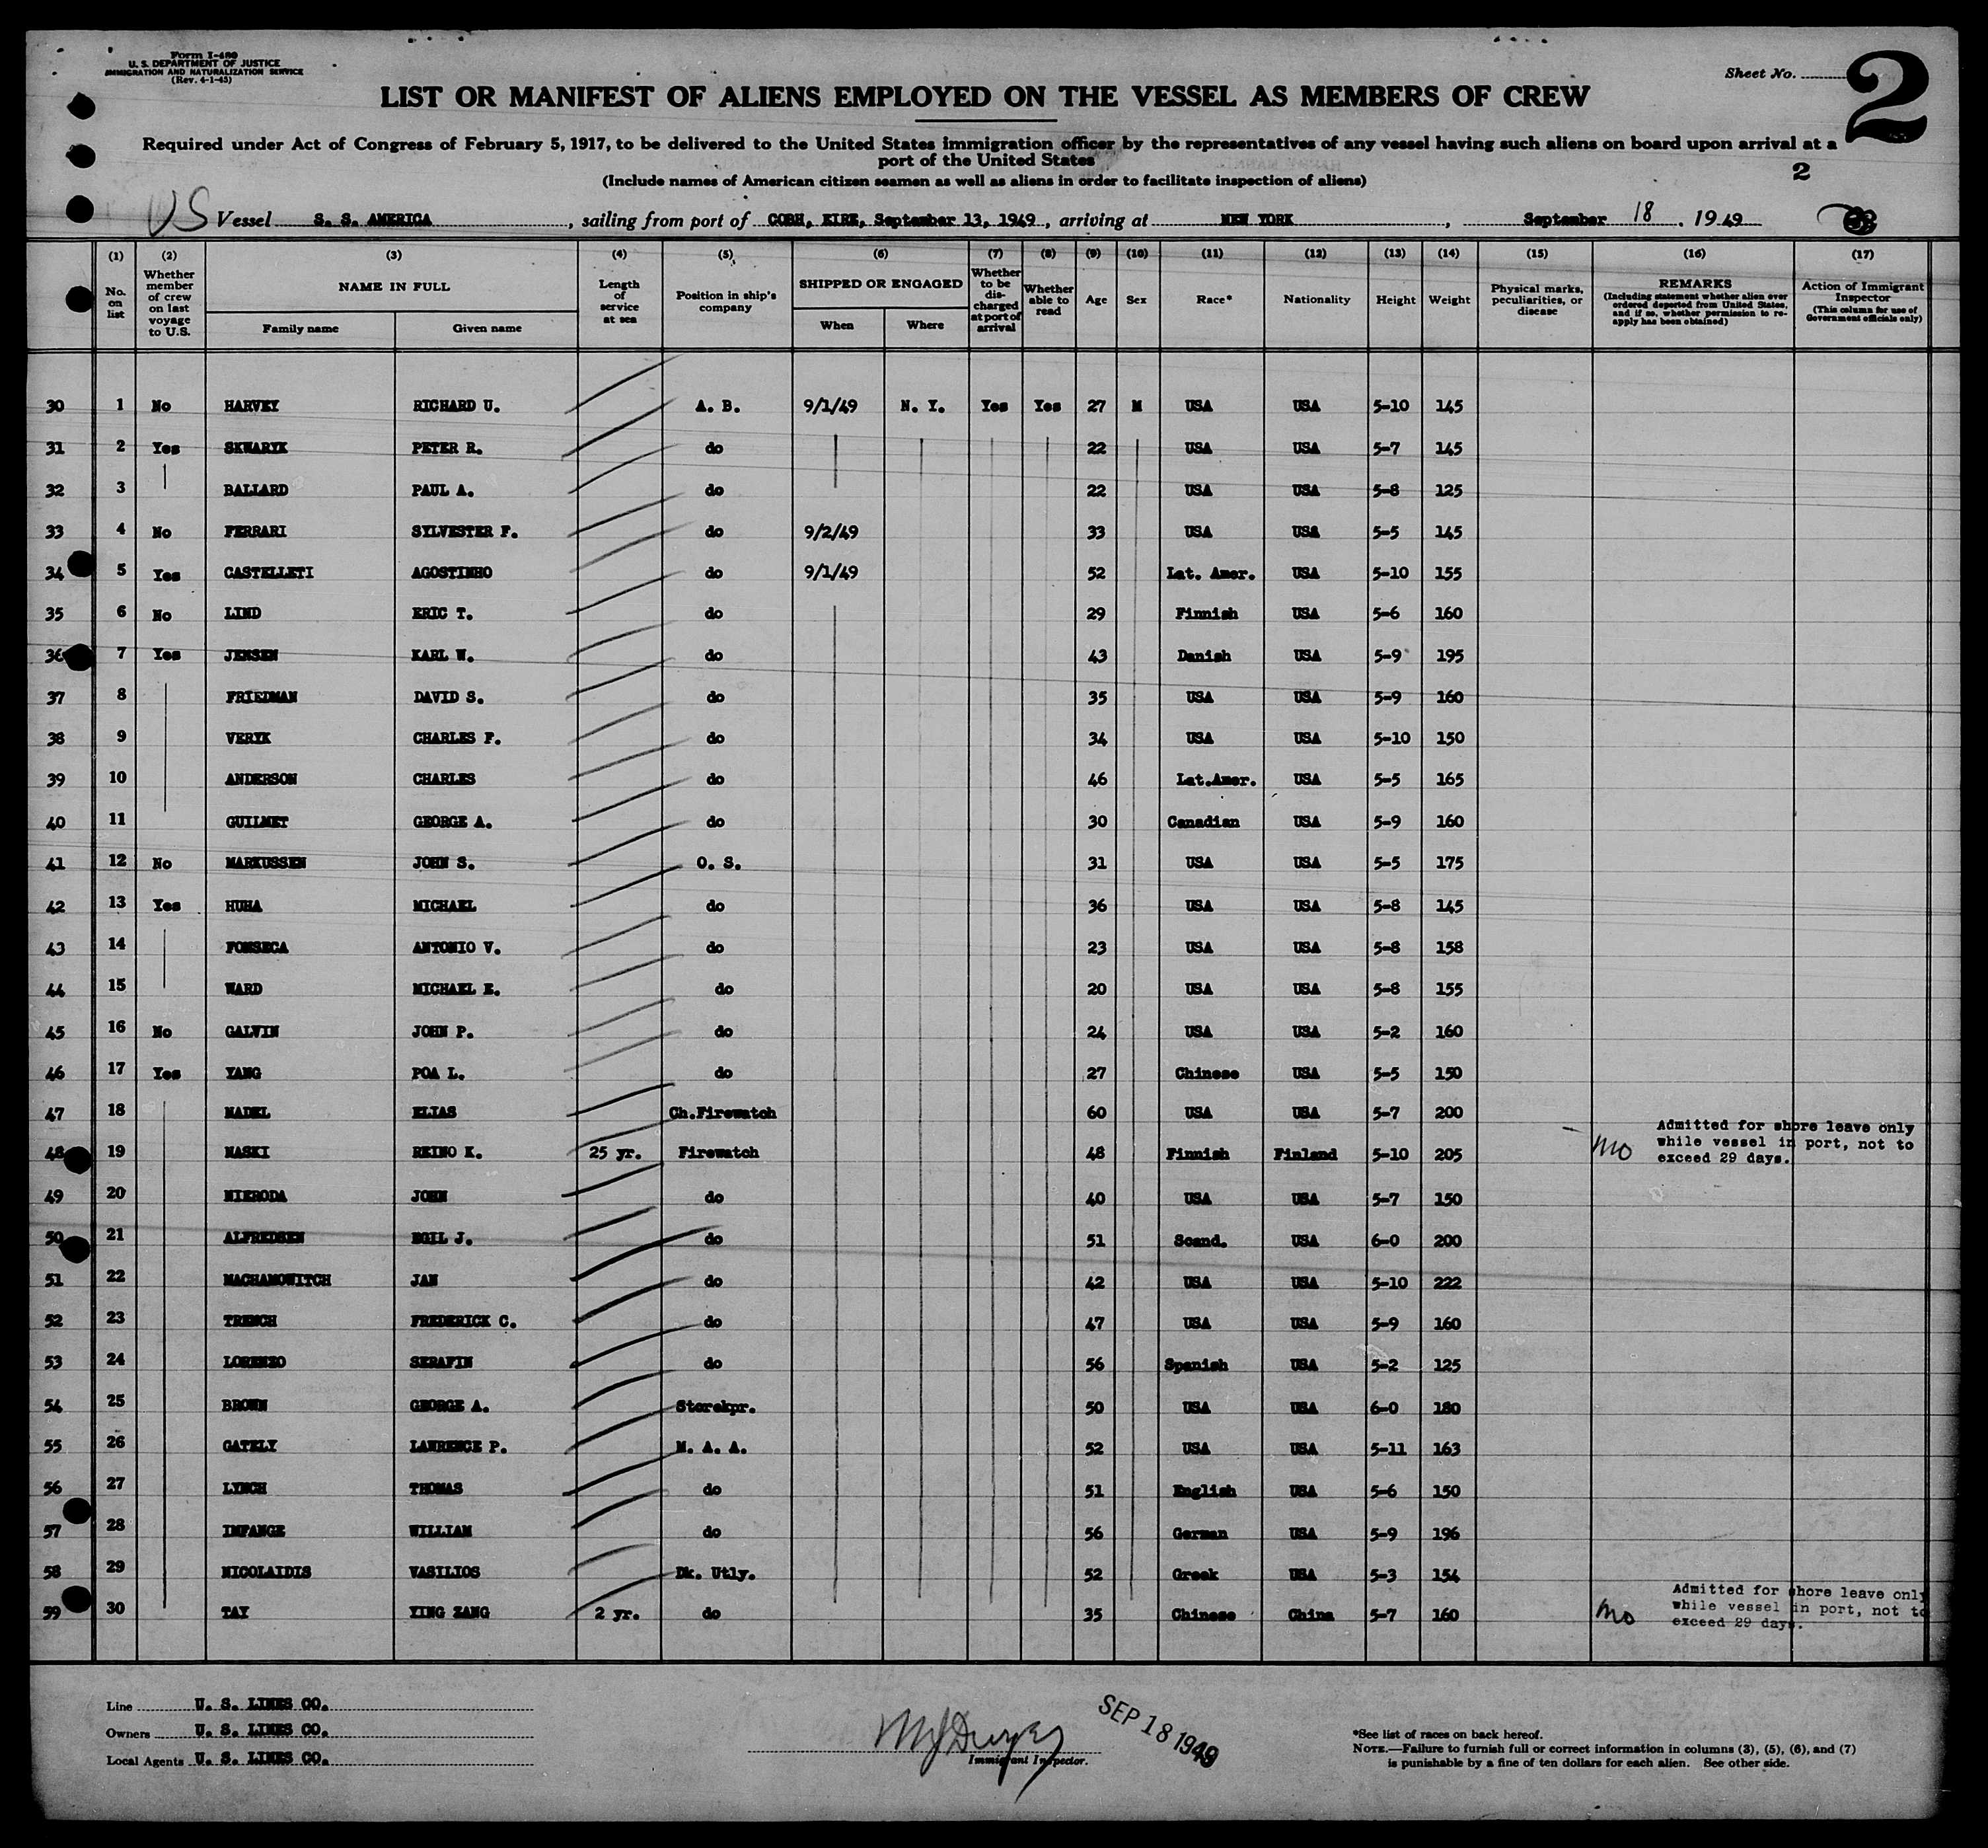 Form I-480
U. S. DEPARTMENT OF JUSTICE
IMMIGRATION AND NATURALIZATION SERVICE
(Rev. 4-1-45)
Sheet No. 2
LIST OR MANIFEST OF ALIENS EMPLOYED ON THE VESSEL AS MEMBERS OF CREW
Required under Act of Congress of February 5, 1917, to be delivered to the United States immigration officer by the representatives of any vessel having such aliens on board upon arrival at a
port of the United States
2
(Include names of American citizen seamen as well as aliens in order to facilitate inspection of aliens)
US Vessel S. S. AMERICA, sailing from port of COBH, EIRE, September 13, 1949, arriving at NEW YORK, September 18, 1949
(1) (2) (3) (4) (5) (6) (7) (8) (9) (10) (11) (12) (13) (14) (15) (16) (17)
No. on list
Whether member of crew on last voyage to U.S.
NAME IN FULL
Family name Given name
Length of service at sea
Position in ship's company
SHIPPED OR ENGAGED
When Where
Whether to be discharged at port of arrival
Whether able to read
Age Sex Race* Nationality Height Weight
Physical marks, peculiarities, or disease
REMARKS
(Including statement whether alien ever ordered deported from United States, and if so, whether permission to re-apply has been obtained)
Action of Immigrant Inspector
(This column for use of Government officials only)
30 1 No HARVEY RICHARD U. A. B. 9/1/49 N. Y. Yes Yes 27 M USA USA 5-10 145
31 2 Yes SKWARYK PETER R. do 22 USA USA 5-7 145
32 3 BALLARD PAUL A. do 22 USA USA 5-8 125
33 4 No FERRARI SYLVESTER F. do 9/2/49 33 USA USA 5-5 145
34 5 Yes CASTELLETI AGOSTINHO do 9/1/49 52 Lat. Amer. USA 5-10 155
35 6 No LIND ERIC T. do 29 Finnish USA 5-6 160
36 7 Yes JENSEN KARL W. do 43 Danish USA 5-9 195
37 8 FRIEDMAN DAVID S. do 35 USA USA 5-9 160
38 9 VERYK CHARLES F. do 34 USA USA 5-10 150
39 10 ANDERSON CHARLES do 46 Lat.Amer. USA 5-5 165
40 11 GUILMET GEORGE A. do 30 Canadian USA 5-9 160
41 12 No MARKUSSEN JOHN S. O. S. 31 USA USA 5-5 175
42 13 Yes HUHA MICHAEL do 36 USA USA 5-8 145
43 14 FONSECA ANTONIO V. do 23 USA USA 5-8 158
44 15 WARD MICHAEL E. do 20 USA USA 5-8 155
45 16 No GALVIN JOHN P. do 24 USA USA 5-2 160
46 17 Yes YANG POA L. do 27 Chinese USA 5-5 150
47 18 NADEL ELIAS Ch.Firewatch 60 USA USA 5-7 200
48 19 NASKI REINO K. 25 yr. Firewatch 48 Finnish Finland 5-10 205 Admitted for shore leave only
while vessel in port, not to
exceed 29 days.
49 20 NIERODA JOHN do 40 USA USA 5-7 150
50 21 ALFREDSEN EGIL J. do 51 Scand. USA 6-0 200
51 22 MACHANOWITCH JAN do 42 USA USA 5-10 222
52 23 TRENCH FREDERICK C. do 47 USA USA 5-9 160
53 24 LORENZO SERAFIN do 56 Spanish USA 5-2 125
54 25 BROWN GEORGE A. Storekpr. 50 USA USA 6-0 180
55 26 GATELY LAWRENCE P. M. A. A. 52 USA USA 5-11 163
56 27 LYNCH THOMAS do 51 English USA 5-6 150
57 28 IMFANGE WILLIAM do 56 German USA 5-9 196
58 29 NICOLAIDIS VASILIOS Dk. Utly. 52 Greek USA 5-3 154
59 30 TAY YING ZANG 2 yr. do 35 Chinese China 5-7 160 Admitted for shore leave only
while vessel in port, not to
exceed 29 days.
Line U. S. LINES CO.
Owners U. S. LINES CO.
Local Agents U. S. LINES CO.
Immigrant Inspector.
SEP 18 1949
*See list of races on back hereof.
NOTE.—Failure to furnish full or correct information in columns (3), (5), (6), and (7)
is punishable by a fine of ten dollars for each alien. See other side.